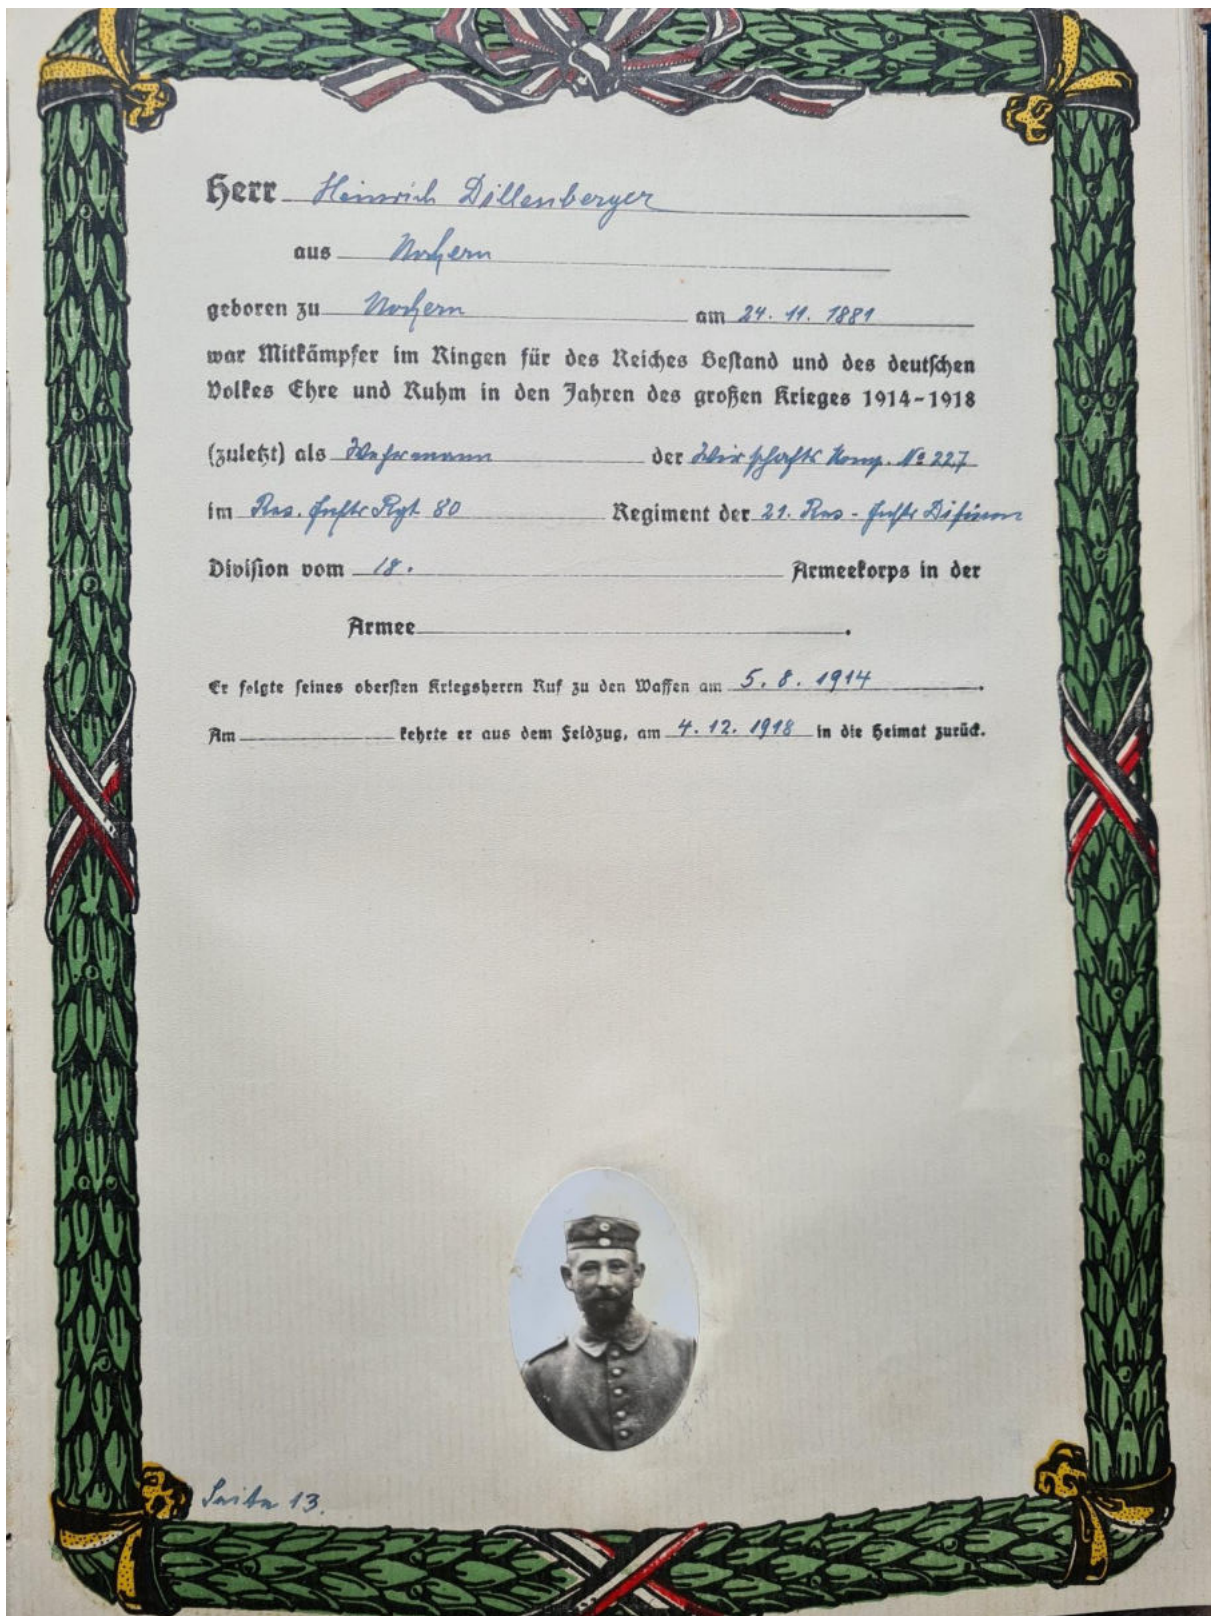 Herr Heinrich Dillenberger
aus Nochern
geboren zu Nochern am 24. 11. 1881
war Mitkämpfer im Ringen für des Reiches Bestand und des deutschen
Volkes Ehre und Ruhm in den Jahren des großen Krieges 1914-1918
(zuletzt) als Wehrmann der Wirtschafts Komp. № 227
im Res. Inftr Rgt. 80 Regiment der 21. Res - Inftr Division
Division vom 18. Armeekorps in der
Armee .
Er folgte seines obersten Kriegsherrn Ruf zu den Waffen am 5. 8. 1914 .
Am kehrte er aus dem Feldzug, am 4. 12. 1918 in die Heimat zurück.
Seite 13.